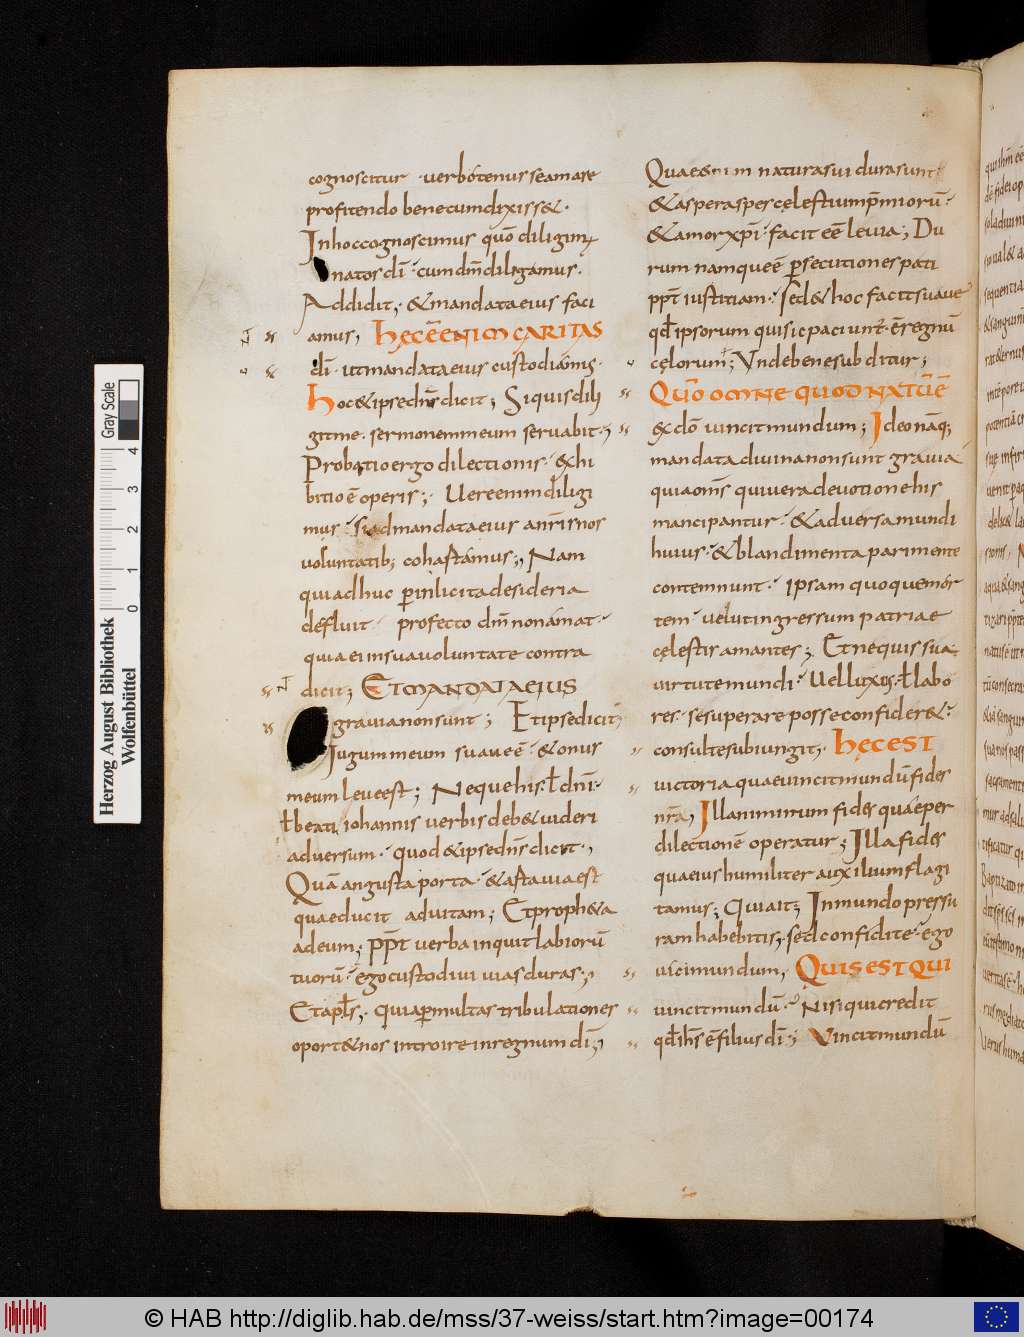 cognoscitur · verbótenus se amare
profitendo bene cum dixiss&·
In hoc cognoscimus quō diligimꝰ
natos dī · cum dm̄ diligamus·
Addidit; & mandata eius faci
amus, hęc ē enim caritas
dī· ut mandata eius custodiámus·
hoc & ipse dn̄s dicit; Siquis dili
git me· sermonem meum servabit·;
Probatio ergo dilectionis· exhi
bitio ē operis; Uere enim diligi
mus· si ad mandata eius a nr̄is nos
voluntatib; cohartámus; Nam
qui adhuc ꝑ inlicita desideria
defluit· profecto dm̄ non ámat·
quia ei in sua voluntate contra
dicit; Et mandata eius
gravia non sunt; Et ipse dicit;
Iugum meum suave ē· & onus
meum leve est; Neque his ł dn̄i·
ł beati iohannis verbis deb& videri
adversum· quod & ipse dn̄s dicit·,
Quā angusta porta· & arta via est
quae ducit ad vitam; Et proph&a
ad eum; ꝓpt̄ verba inquit labiorū
tuorū· ego custodivi vias duras;
Et apłs; quia ꝑ multas tribulationes
oport& nos introire in regnum dī;
Quae enim natura sui dura sunt
& aspera spes cęlestium p̄miorū·
& amor xp̄i· facit eē levia; Du
rum namque ē ꝑsecutiones pati
ꝓpt̄ iustitiam· sed & hoc facit suave
qd̄ ipsorum qui sic paciunt̄· ē regnū
cęlorum; Unde bene subditur;
Qūo omne quod natū ē
ex dō vincit mundum; Ideo nāq;
mandata divina non sunt gravia
quia om̄s qui vera devotione his
mancipantur· & adversa mundi
huius· & blandimenta pari mente
contemnunt· ipsam quoque mor
tem velut ingressum patriae
cęlestis amantes; Et nequis sua
virtute mundi· vel luxus· ł labo
res· se superare posse confider&·
consulte subiungit; hęc est
victoria quae vincit mundū fides
nr̄a, Illa nimirum fides quae per
dilectionē operatur; Illa fides
qua eius humiliter auxilium flagi
tamus; Qui ait; In mundo pressu
ram habebitis; sed confidite· ego
vici mundum, Quis est qui
vincit mundū· Nisi qui credit
qd̄ ih̄s ē filius dī; Vincit mundū
Herzog August Bibliothek
Wolfenbüttel
Gray Scale
0 1 2 3 4
© HAB http://diglib.hab.de/mss/37-weiss/start.htm?image=00174